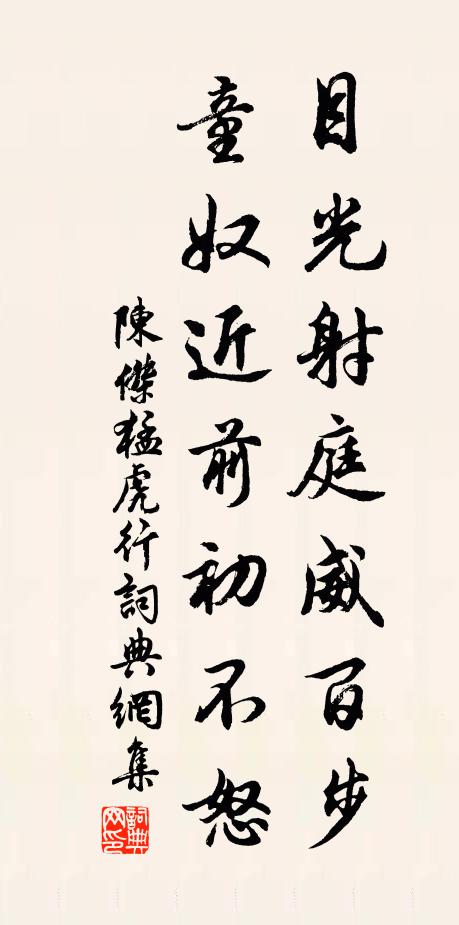 目光射庭威百步
童奴近前初不怒
陳傑猛虎行詞典網集
詞典網印